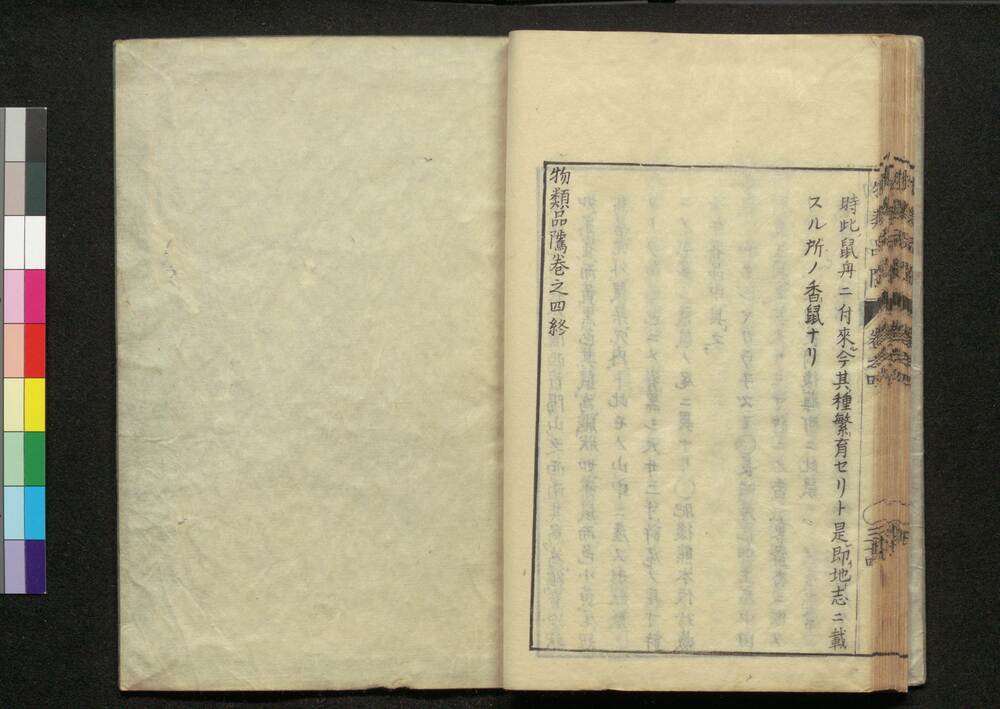 時此鼠舟ニ付來ル今其種繁育セリト是即地志ニ載
スル所ノ香鼠ナリ
物類品隲卷之四終
物類品隲
卷之四